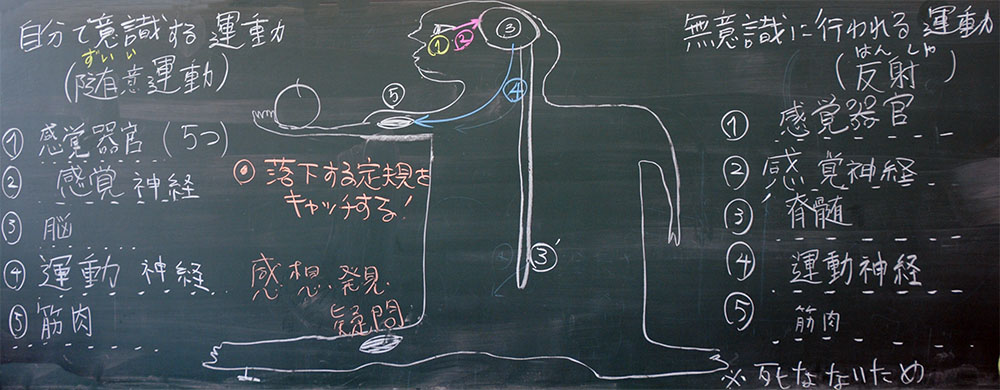 自分で意識する運動
ずいい
(随意運動)
① 感覚器官(5つ)
② 感覚神経
③ 脳
④ 運動神経
⑤ 筋肉
①
②
③
④
⑤
③'
◎ 落下する定規を
キャッチする!
感想、発見
疑問
無意識に行われる運動
はんしゃ
(反射)
① 感覚器官
② 感覚神経
③' 脊髄
④ 運動神経
⑤ 筋肉
※ 死なないため